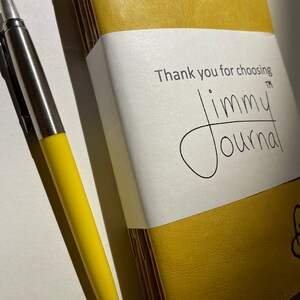 Thank you for choosing
Jimmy™
Journal